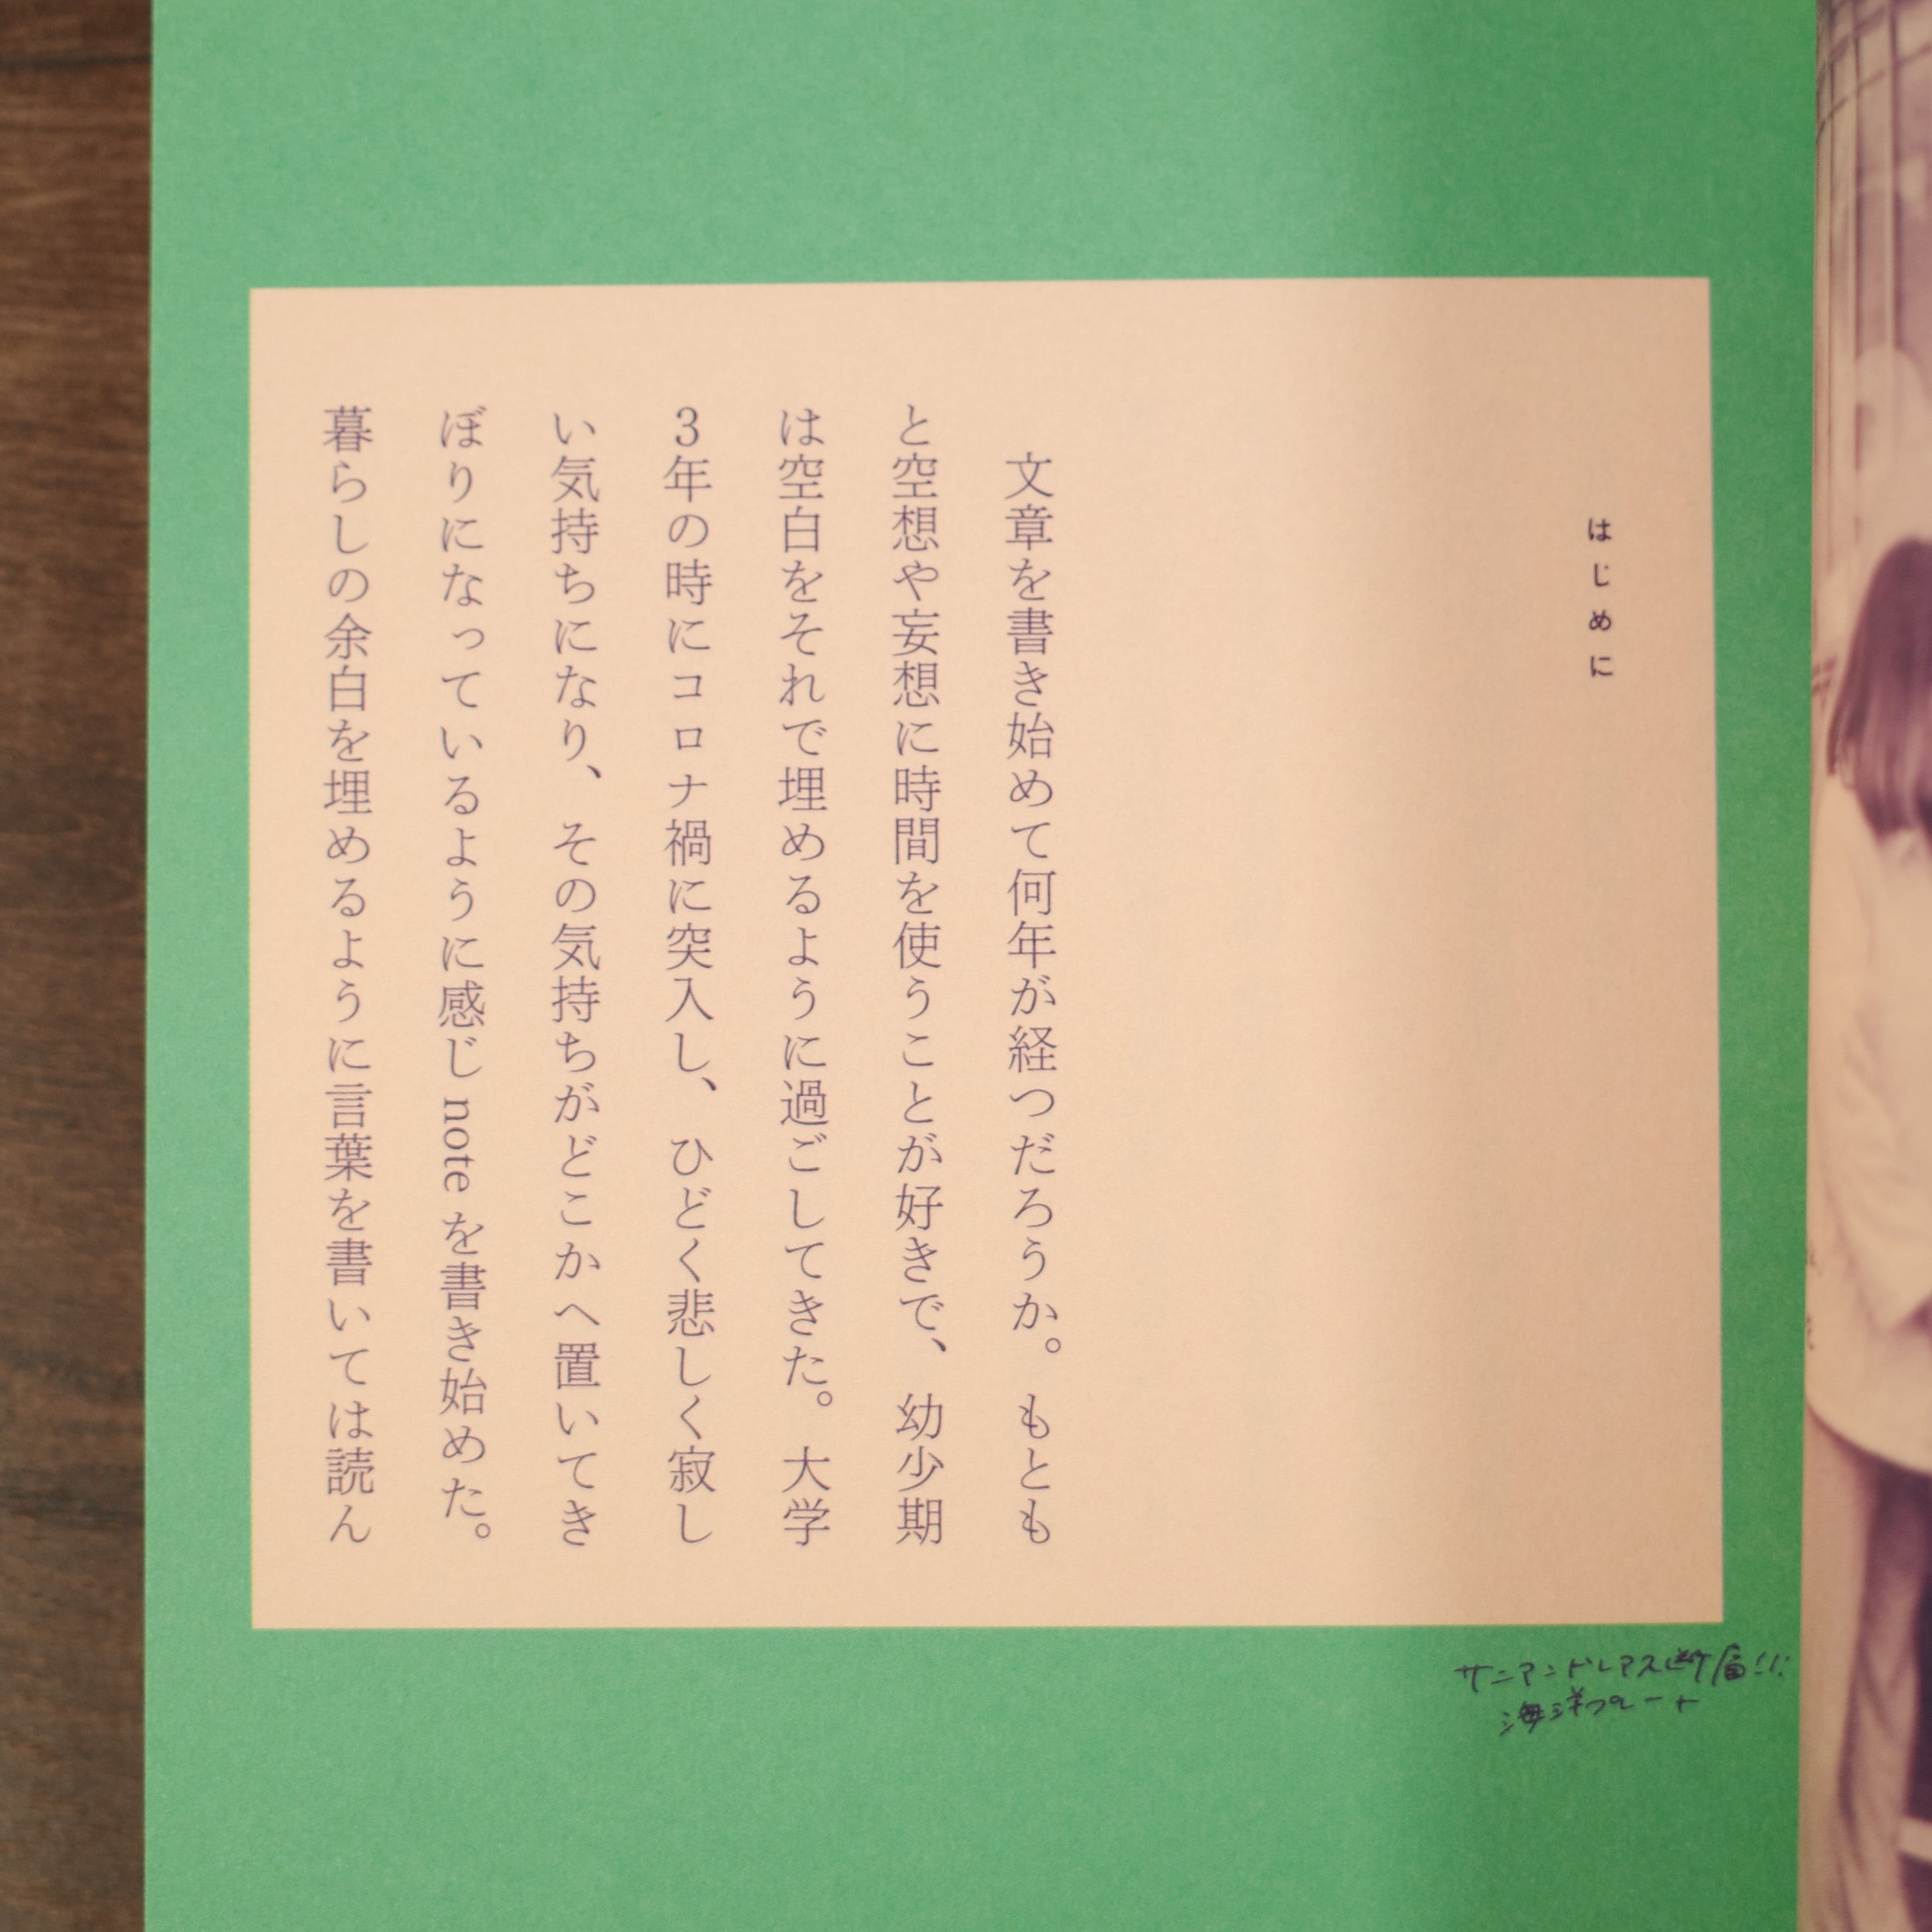 はじめに
文章を書き始めて何年が経つだろうか。もとも
と空想や妄想に時間を使うことが好きで、幼少期
は空白をそれで埋めるように過ごしてきた。大学
3年の時にコロナ禍に突入し、ひどく悲しく寂し
い気持ちになり、その気持ちがどこかへ置いてき
ぼりになっているように感じnoteを書き始めた。
暮らしの余白を埋めるように言葉を書いては読ん
サンアンドレアス断層!!
海洋プレート